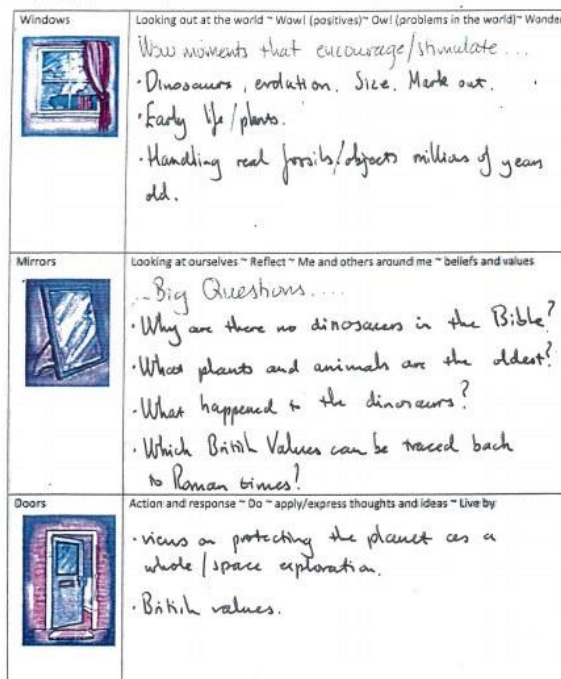 Windows
Looking out at the world ~ Wow! (positives)~ Ow! (problems in the world)~ Wonder
Wow moments that encourage/stimulate...
· Dinosaurs, evolution. Size. Mark out.
· Early life/plants.
· Handling real fossils/objects millions of years
old.
Mirrors
Looking at ourselves ~ Reflect ~ Me and others around me ~ beliefs and values
...Big Questions....
· Why are there no dinosaurs in the Bible?
· What plants and animals are the oldest?
· What happened to the dinosaurs?
· Which British Values can be traced back
to Roman times?
Doors
Action and response ~ Do ~ apply/express thoughts and ideas ~ Live by
· views on protecting the planet as a
whole/space exploration.
· British values.